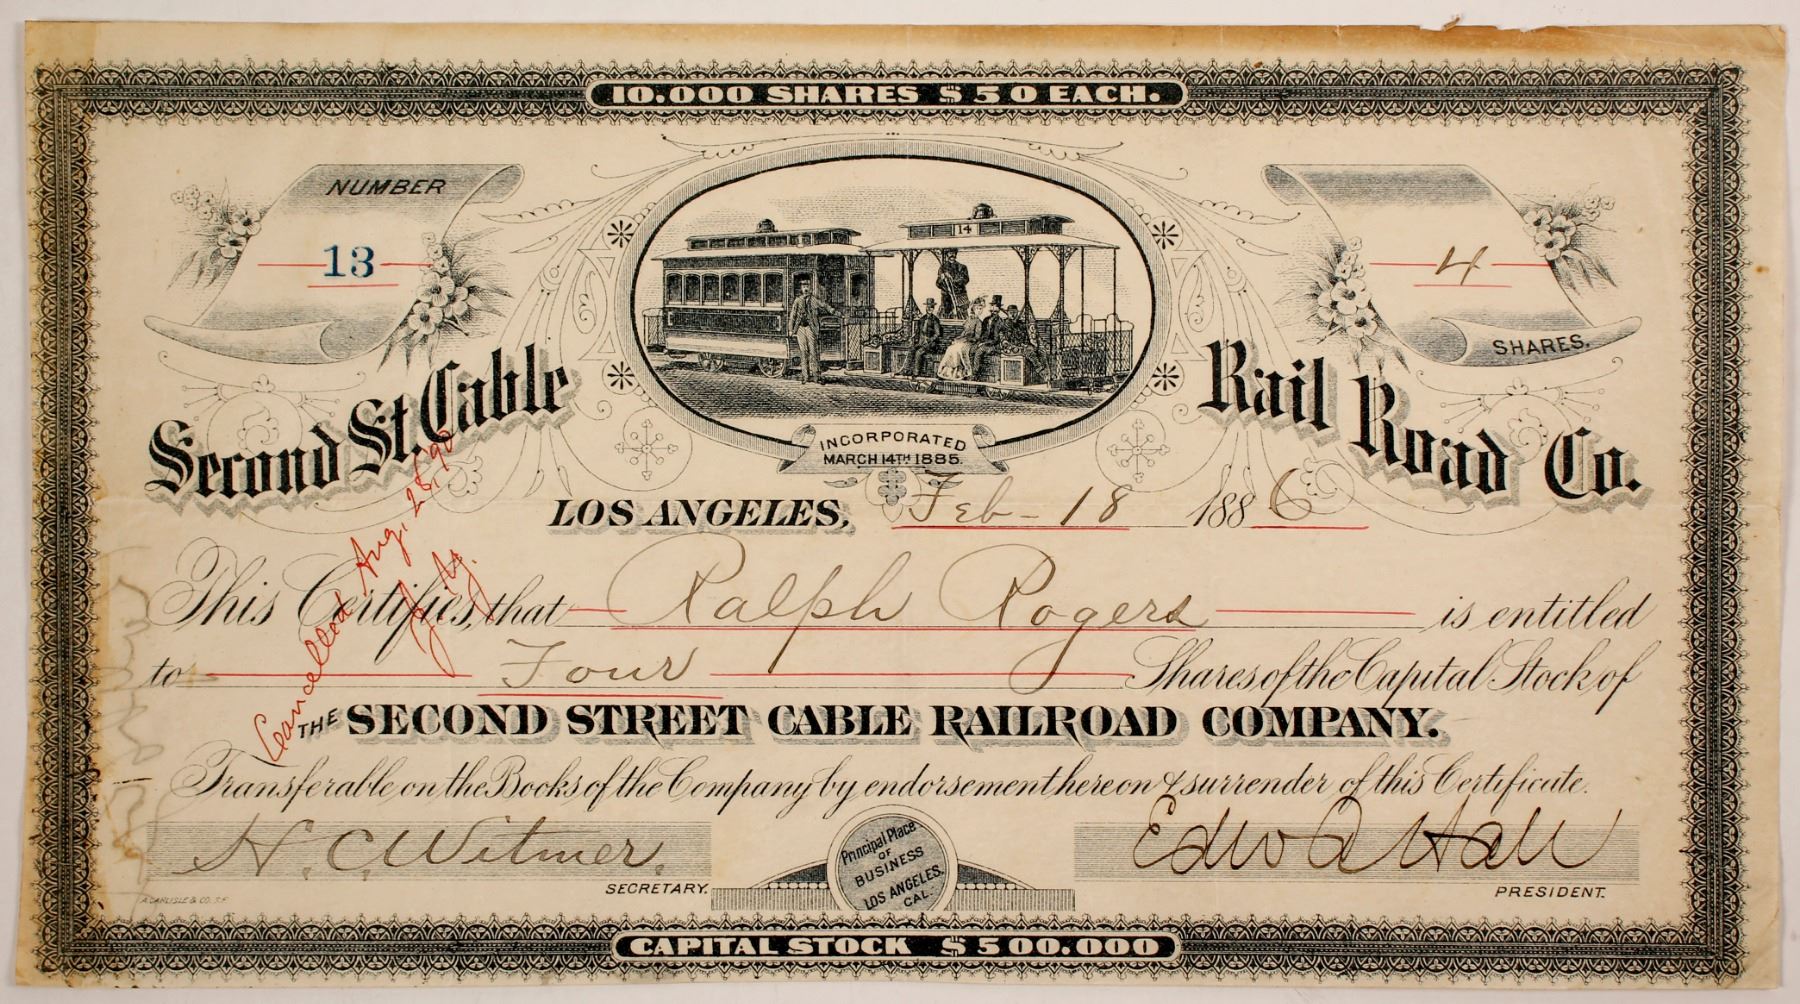 10.000 SHARES $50 EACH.
NUMBER
13
14
4
SHARES.
Second St. Cable Rail Road Co.
INCORPORATED
MARCH 14TH 1885.
LOS ANGELES, Feb - 18 1886
This Certifies, that Ralph Rogers is entitled
to Four Shares of the Capital Stock of
THE SECOND STREET CABLE RAILROAD COMPANY.
Transferable on the Books of the Company by endorsement hereon & surrender of this Certificate.
Cancelled Aug. 28, 90
H. C. Witmer.
SECRETARY.
Principal Place
OF
BUSINESS
LOS ANGELES.
CAL.
Edwd A Hall
PRESIDENT.
A. CARLISLE & CO. S.F.
CAPITAL STOCK $500.000